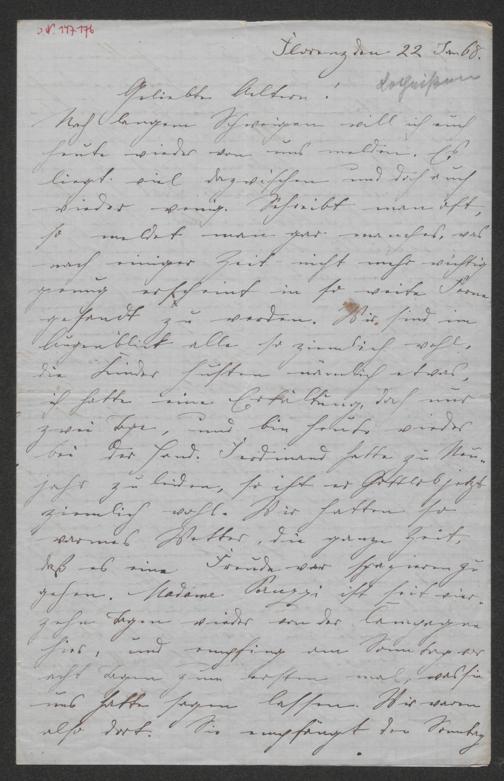 Florenz den 22 Jan 68.
Geliebte Aeltern!
Nach langem Schweigen will ich euch
heute wieder von uns melden. Es
liegt viel dazwischen und doch auch
wieder wenig. Schreibt man oft,
so meldet man gar manches, was
nach einiger Zeit nicht mehr wichtig
genug erscheint in so weite Ferne
gesandt zu werden. Wir sind im
Augenblick alle so ziemlich wohl,
die Kinder husten nämlich etwas,
ich hatte eine Erkältung, doch nur
zwei Tage, und bin heute wieder
bei der Hand. Ferdinand hatte zu Neu-
jahr zu leiden, so ist er Gottlob jetzt
ziemlich wohl. Wir hatten so
warmes Wetter, die ganze Zeit,
daß es eine Freude war spazieren zu
gehen. Madame ist seit vier-
zehn Tagen wieder von der Campagne
hier, und empfing am Sonntag vor
acht Tagen zum ersten mal, was sie
uns hatte sagen lassen. Wir waren
also dort. Sie empfängt den Sonntag